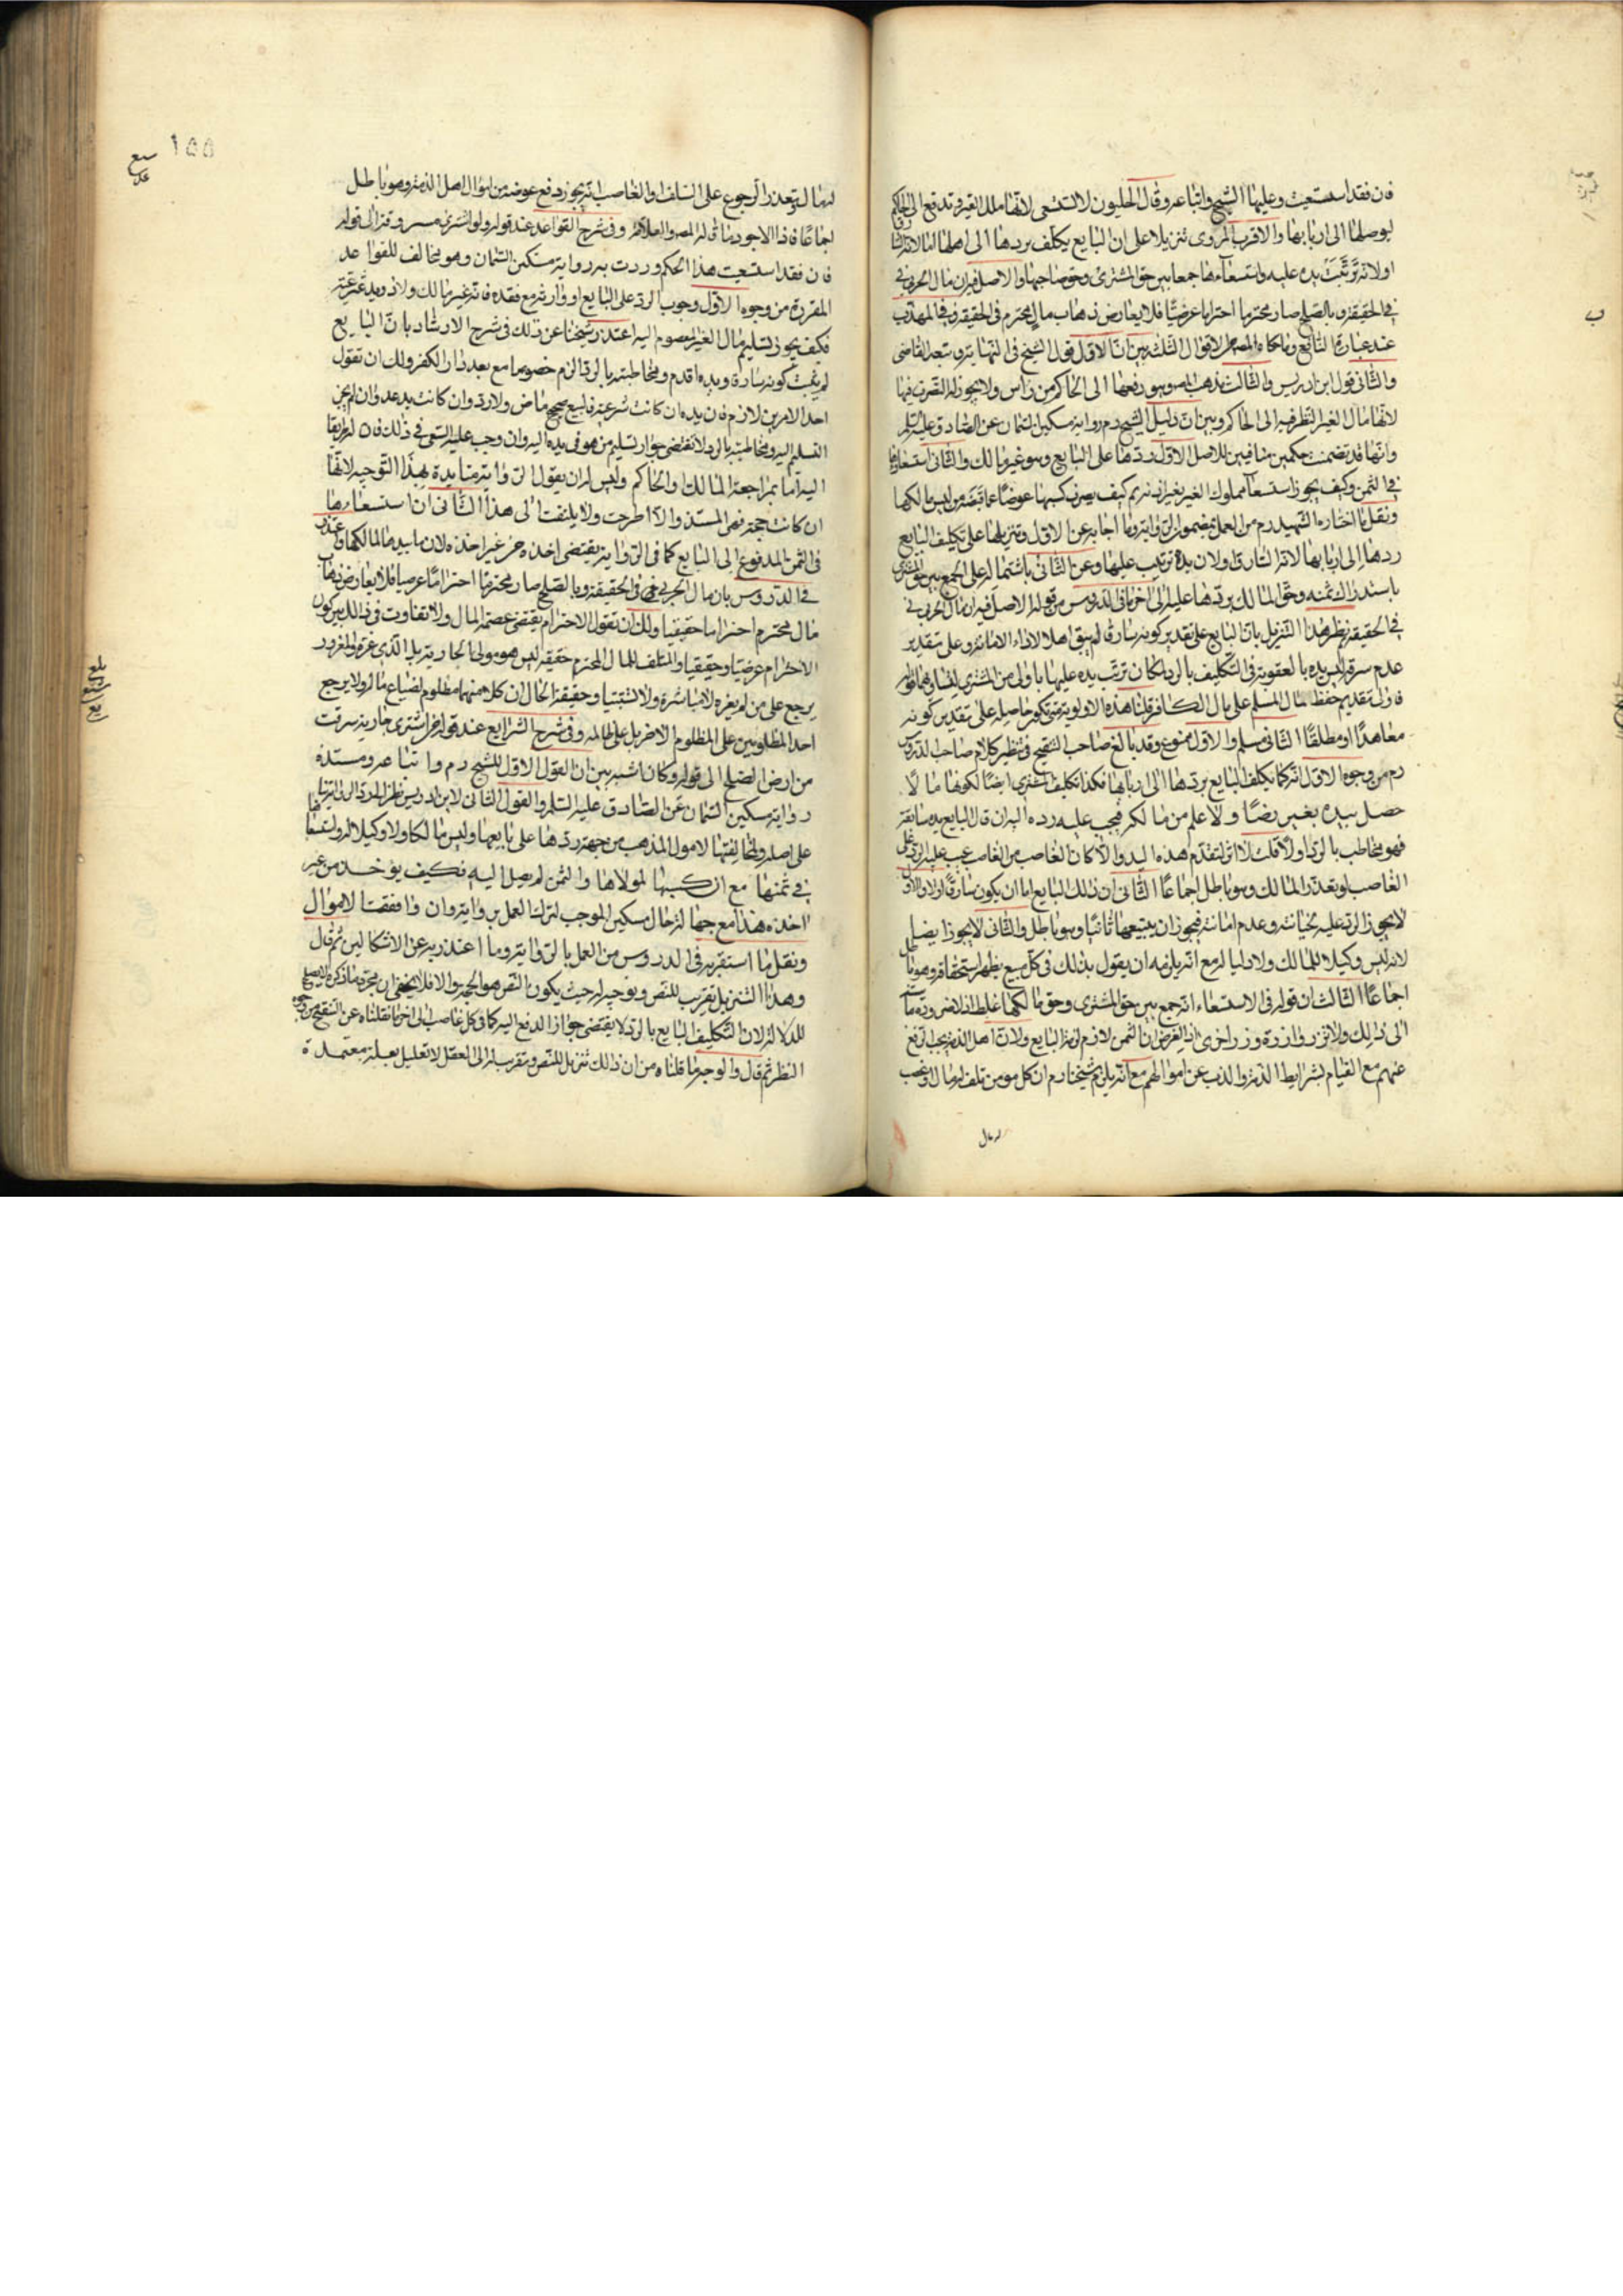 فان فقد استسعيت وعليها الشيخ واتباعه وقال الحليون لا تستسعى لانها ملك الغير وتدفع الى الحاكم
ليوصلها الى اربابها والاقرب المروى تنزيلا على ان البايع يكلف بردها الى اهلها اما لانه السارق
او لانه ترتبت يده عليه واستسعاءها جمعا بين حق المشترى وحق صاحبها والاصل فيه ان مال الحربى فى
فى الحقيقة وبالصلح صار محترما احتراما عرضيا فلا يعارض ذهاب مال محترم فى الحقيقة وفى المهذب
عند عبارة النافع وما حكاه المصنف الاقوال الثلثة بين ان الاول قول الشيخ فى النهاية وتبعه القاضى
والثانى قول ابن ادريس والثالث مذهب المص وهو رفعها الى الحاكم من راس ولا يجوز له التصرف فيها
لانها مال لغير النظر فيه الى الحاكم وبين ان دليل الشيخ ره رواية مسكين السمان عن الصادق عليه السلم
وانها قد تضمنت حكمين منافيين للاصل الاول ردها على البايع وهو غير مالك والثانى استسعاؤها
فى الثمن وكيف يجوز استسعاء مملوك الغير بغير اذنه ثم كيف يصرف كسبها عوضا عما قبضه من ليس مالكها
ونقل ما اختاره الشهيد ره من العمل بمضمون الرواية وما اجاب به عن الاول وتنزيلها على تكليف البايع
ردها الى اربابها لانه السارق او لان يده ترتبت عليها وعن الثانى باشتماله على الجمع بين حق المشترى
باستدراك ثمنه وحق المالك بردها عليه الى اخر ما فى الدروس من قوله الاصل فيه ان مال الحربى فى
فى الحقيقة ثم نظر هذا التنزيل بان البايع على تقدير كونه سارقا لم يبق اهلا لاداء الامانة وعلى تقدير
عدم سرقة ليس يده بالعقوبة فى التكليف بالرد لمكان ترتب يده عليها باولى من المشترى لتساويهما فى
فان تقديم حفظ مال المسلم على مال الكافر قلنا هذه الاولوية حاصلة على تقدير كونه
معاهدا او مطلقا الثانى مسلم والاول ممنوع وقد بالغ صاحب التنقيح فى تنظير كلام صاحب الدروس
ره من وجوه الاول انه كما يكلف البايع بردها الى اربابها فكذا تكليف المشترى ايضا لكونها مالا
حصل بيده بغير رضا ولا علم من مالكه فيجب عليه رده اليه ان قال البايع يده سابقة
فهو مخاطب بالرد اولا قلت لا اثر لتقدم هذه اليد والا كان الغاصب من الغاصب يجب عليه الرد على
الغاصب لو تعذر المالك وهو باطل اجماعا الثانى ان ذلك البايع اما ان يكون سارقا او لا والاول
لا يجوز الرد عليه لخيانته وعدم امانته فيجوز ان يبيعها ثانيا وهو باطل والثانى لا يجوز ايضا
لانه ليس وكيلا للمالك ولا وليا له مع انه يلزمه ان يقول بذلك فى كل مبيع يظهر استحقاقه وهو باطل
اجماعا الثالث ان قوله فى الاستسعاء انه جمع بين حق المشترى وحق مالكها غلط اذ لا ضرورة ماسة
الى ذلك ولا تزر وازرة وزر اخرى اذ الغرض ان الثمن لازم لذمة البايع ولان اهل الذمة يجب الدفع
عنهم مع القيام بشرايط الذمة والذب عن اموالهم مع انه يلزم شيخنا ره ان كل مومن تلف له مال او غصب
له مال
١٥٥
لهما لو تعذر الرجوع على المتلف او الغاصب انه يجوز دفع عوضه من اموال اهل الذمة وهو باطل
اجماعا فاذا الاجود ما قاله المص والعلامة وفى شرح القواعد عند قوله ولو اشترى مسروقة الى قوله
فان فقد استسعيت هذا الحكم وردت به رواية مسكين السمان وهو مخالف للقواعد
المقررة من وجوه الاول وجوب الرد على البايع او وارثه مع فقده فانه غير مالك ولا ذو يد شرعية
فكيف يجوز تسليم مال الغير المعصوم اليه اعتذر شيخنا عن ذلك فى شرح الارشاد بان البايع
لم يثبت كونه سارقا ويده اقدم ومخاطبته بالرد الزم خصوصا مع بعد دار الكفر ولك ان تقول
احد الامرين لازم فان يده ان كانت شرعية فالبيع صحيح ماض ولا رد وان كانت يد عدوان لم يجز
التسليم اليه ومخاطبته بالرد لا تقتضى جواز تسليم من هو فى يده اليه وان وجب عليه السعى فى ذلك فان له طريقا
اليه اما بمراجعة المالك او الحاكم وليس له ان يقول الرواية مؤيدة بهذا التوجيه لانها
ان كانت حجة فهى المستند والا اطرحت ولا يلتفت الى هذا الثانى ان استسعاءها
فى الثمن المدفوع الى البايع كما فى الرواية يقتضى اخذه من غير اخذه لان ما بيدها لمالكها واعتذر
فى الدروس بان مال الحربى فئ فى الحقيقة وبالصلح صار محترما احتراما عرضيا فلا يعارض ذهاب
مال محترم احتراما حقيقيا ولك ان تقول الاحترام يقتضى عصمة المال ولا تفاوت فى ذلك بين كون
الاحترام عرضيا وحقيقيا والمتلف للمال المحترم حقيقة ليس هو مولى الجارية بل الذى غره والمغرور
يرجع على من لم يغره لا مباشرة ولا تسبيبا وحقيقة الحال ان كلا منهما مظلوم لضياع ماله ولا يرجع
احد المظلومين على المظلوم الاخر بل على ظالمه وفى شرح الشرايع عند قوله من اشترى جارية سرقت
من ارض الصلح الى قوله وكان اشبه بين ان القول الاول للشيخ ره واتباعه ومستنده
رواية مسكين السمان عن الصادق عليه السلم والقول الثانى لابن ادريس نظرا لرد الرواية
على اصله ولمخالفتها لاصول المذهب من جهة ردها على بايعها وليس مالكا ولا وكيلا له واستسعاءها
فى ثمنها مع ان كسبها لمولاها والثمن لم يصل اليه فكيف يؤخذ من غير
اخذه هذا مع جهالة حال مسكين الموجب لترك العمل بروايته وان وافقت الاصول
ونقل ما استقر به فى الدروس من العمل بالرواية وما اعتذر به عن الاشكالين ثم قال
وهذا التنزيل تقريب للنص وتوجيه له حيث يكون النص هو الحجة والا فلا يخفى ان مجرد ما ذكره لا يصلح
للدلالة لان التكليف البايع بالرد لا يقتضى جواز الدفع اليه كما فى كل غاصب الى اخر ما نقلناه عن التنقيح من وجوه
النظر ثم قال والوجه ما قلناه من ان ذلك تنزيل للنص وتقريب له الى العقل لا تعليل بعلة معتمدة